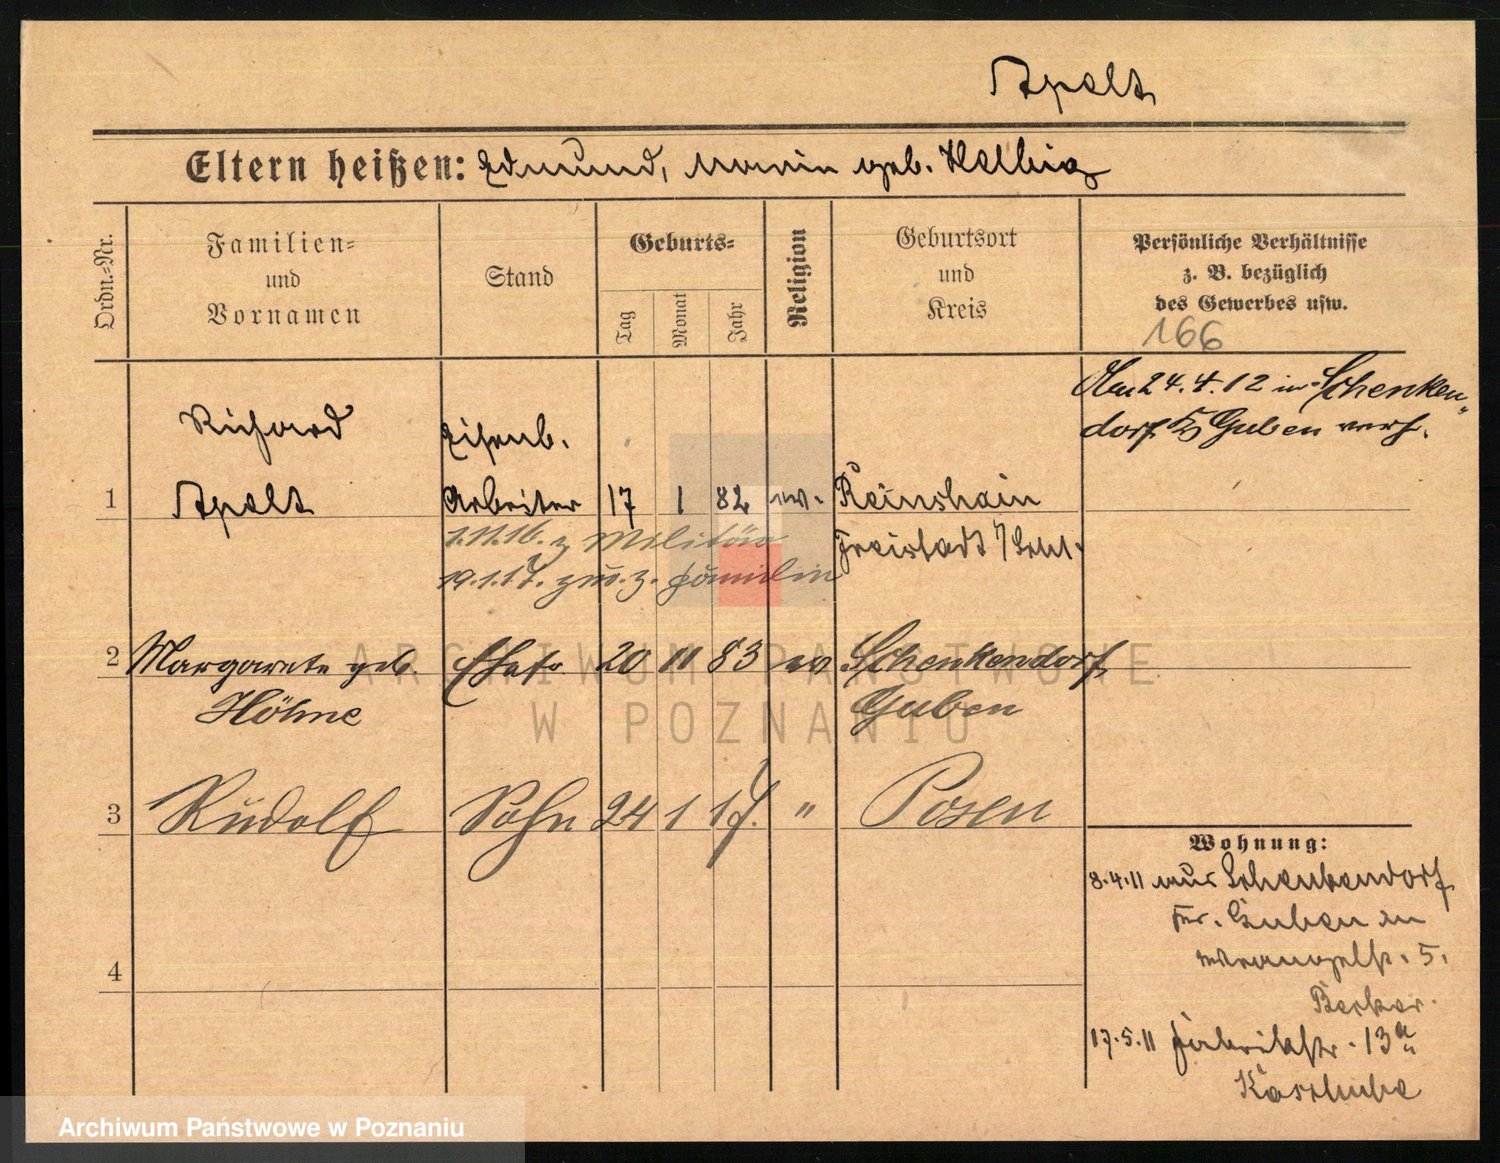 Apelt
Eltern heißen: Edmund, Maria geb. Helbig
Ordn.=Nr.
Familien=
und
Vornamen
Stand
Geburts=
Tag
Monat
Jahr
Religion
Geburtsort
und
Kreis
Persönliche Verhältnisse
z. B. bezüglich
des Gewerbes usw.
166
Am 24.4.12 in Schenken"
dorf Guben verh.
Richard
Eisenb.
1 Apelt Arbeiter 17 1 82 ev. Reinshain
1.11.16. z Militär
Freistadt /Schl.
19.1.17. zur. z. Familie
2 Margarete geb. Ehefr 20 11 83 ev Schenkendorf
Höhne
Guben
3 Rudolf Sohn 24 1 17. " Posen
4
Wohnung:
8.4.11 aus Schenkendorf
Kr. Guben in
Wrangelstr. 5.
Becker.
17.5.11 Fabrikstr. 13a
Kaschube
ARCHIWUM PAŃSTWOWE
W POZNANIU
Archiwum Państwowe w Poznaniu